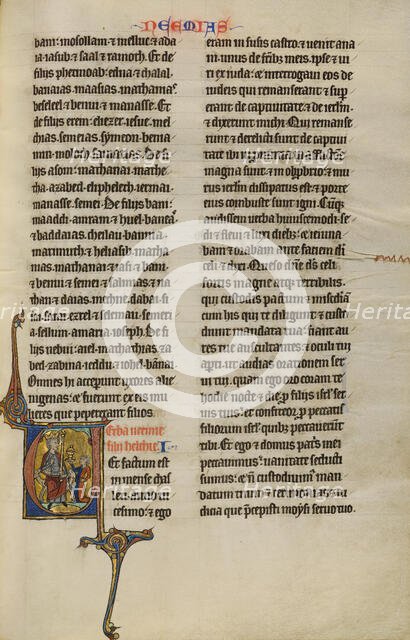 NEEMIAS
bani: mosollam: et melluc: et ada
ia: iasub: et saal: et ramoth. Et de
filijs phetmoab: edna: et chalal.
bananias: maasias: mathanias:
beseleel: et bennui: et manasse. Et
de filijs erem: eliezer: iesue: mel
chias: semeias: symeon: benia
min: moloch: samarias. De fi
lijs asom: mathanai: matha
tha: azabed: eliphelech: iermai:
manasse: semei. De filijs bani:
maaddi: amram: et huel: baneas
et baddaias: cheilau: bannia
marimuth: et heliasif: matha
nias: mathanai: et iasi: et bani:
et bennui: et semei: et salmias: et na
than: et daias:
sisai: sarai: ezrel: et selemau: semei
a: sellum: amaria: ioseph. De fi
lijs nebui: aiel: mathathias: et
zabed: zabina: ieddu: et iohel: banai:
Omnes hi acceperunt uxores alie
nigenas: et fuerunt ex eis mu
lieres que pepererant filios.
Verba neemie
filii helchie. I.
Et factum est
in mense chas
leu: anno ui
cesimo: et ego
eram in susis castro: et uenit ana
ni: unus de fratribus meis, ipse et ui
ri ex iuda: et interrogaui eos de
iudeis qui remanserant et super
erant de captiuitate: et de ierusalem:
et dixerunt michi. Qui remanse
runt et derelicti sunt de captiui
tate ibi in prouincia: in afflictione
magna sunt et in obprobrio: et
murus ierusalem dissipatus est: et porte
eius combuste sunt igni. Cumque
audissem uerba huiuscemodi: se
di et fleui et luxi diebus: et ieiuna
bam et orabam ante faciem dei
celi: et dixi. Queso domine deus celi:
fortis magne atque terribilis:
qui custodis pactum et misericordiam
cum his qui te diligunt et custo
diunt mandata tua: fiant au
res tue auscultantes: et oculi tui
aperti: ut audias orationem ser
ui tui, quam ego oro coram te
hodie nocte et die, pro filijs israel ser
uis tuis: et confiteor pro peccatis
filiorum israel: quibus peccauerunt
tibi. Et ego et domus patris mei
peccauimus: uanitate seducti
sumus: et non custodiuimus man
datum tuum et cerimonias et iu
dicia que precepisti moysi seruo tuo.
Heritage
Heritage
Heritage
Heritage
Heritage
Heritage
images
images
images